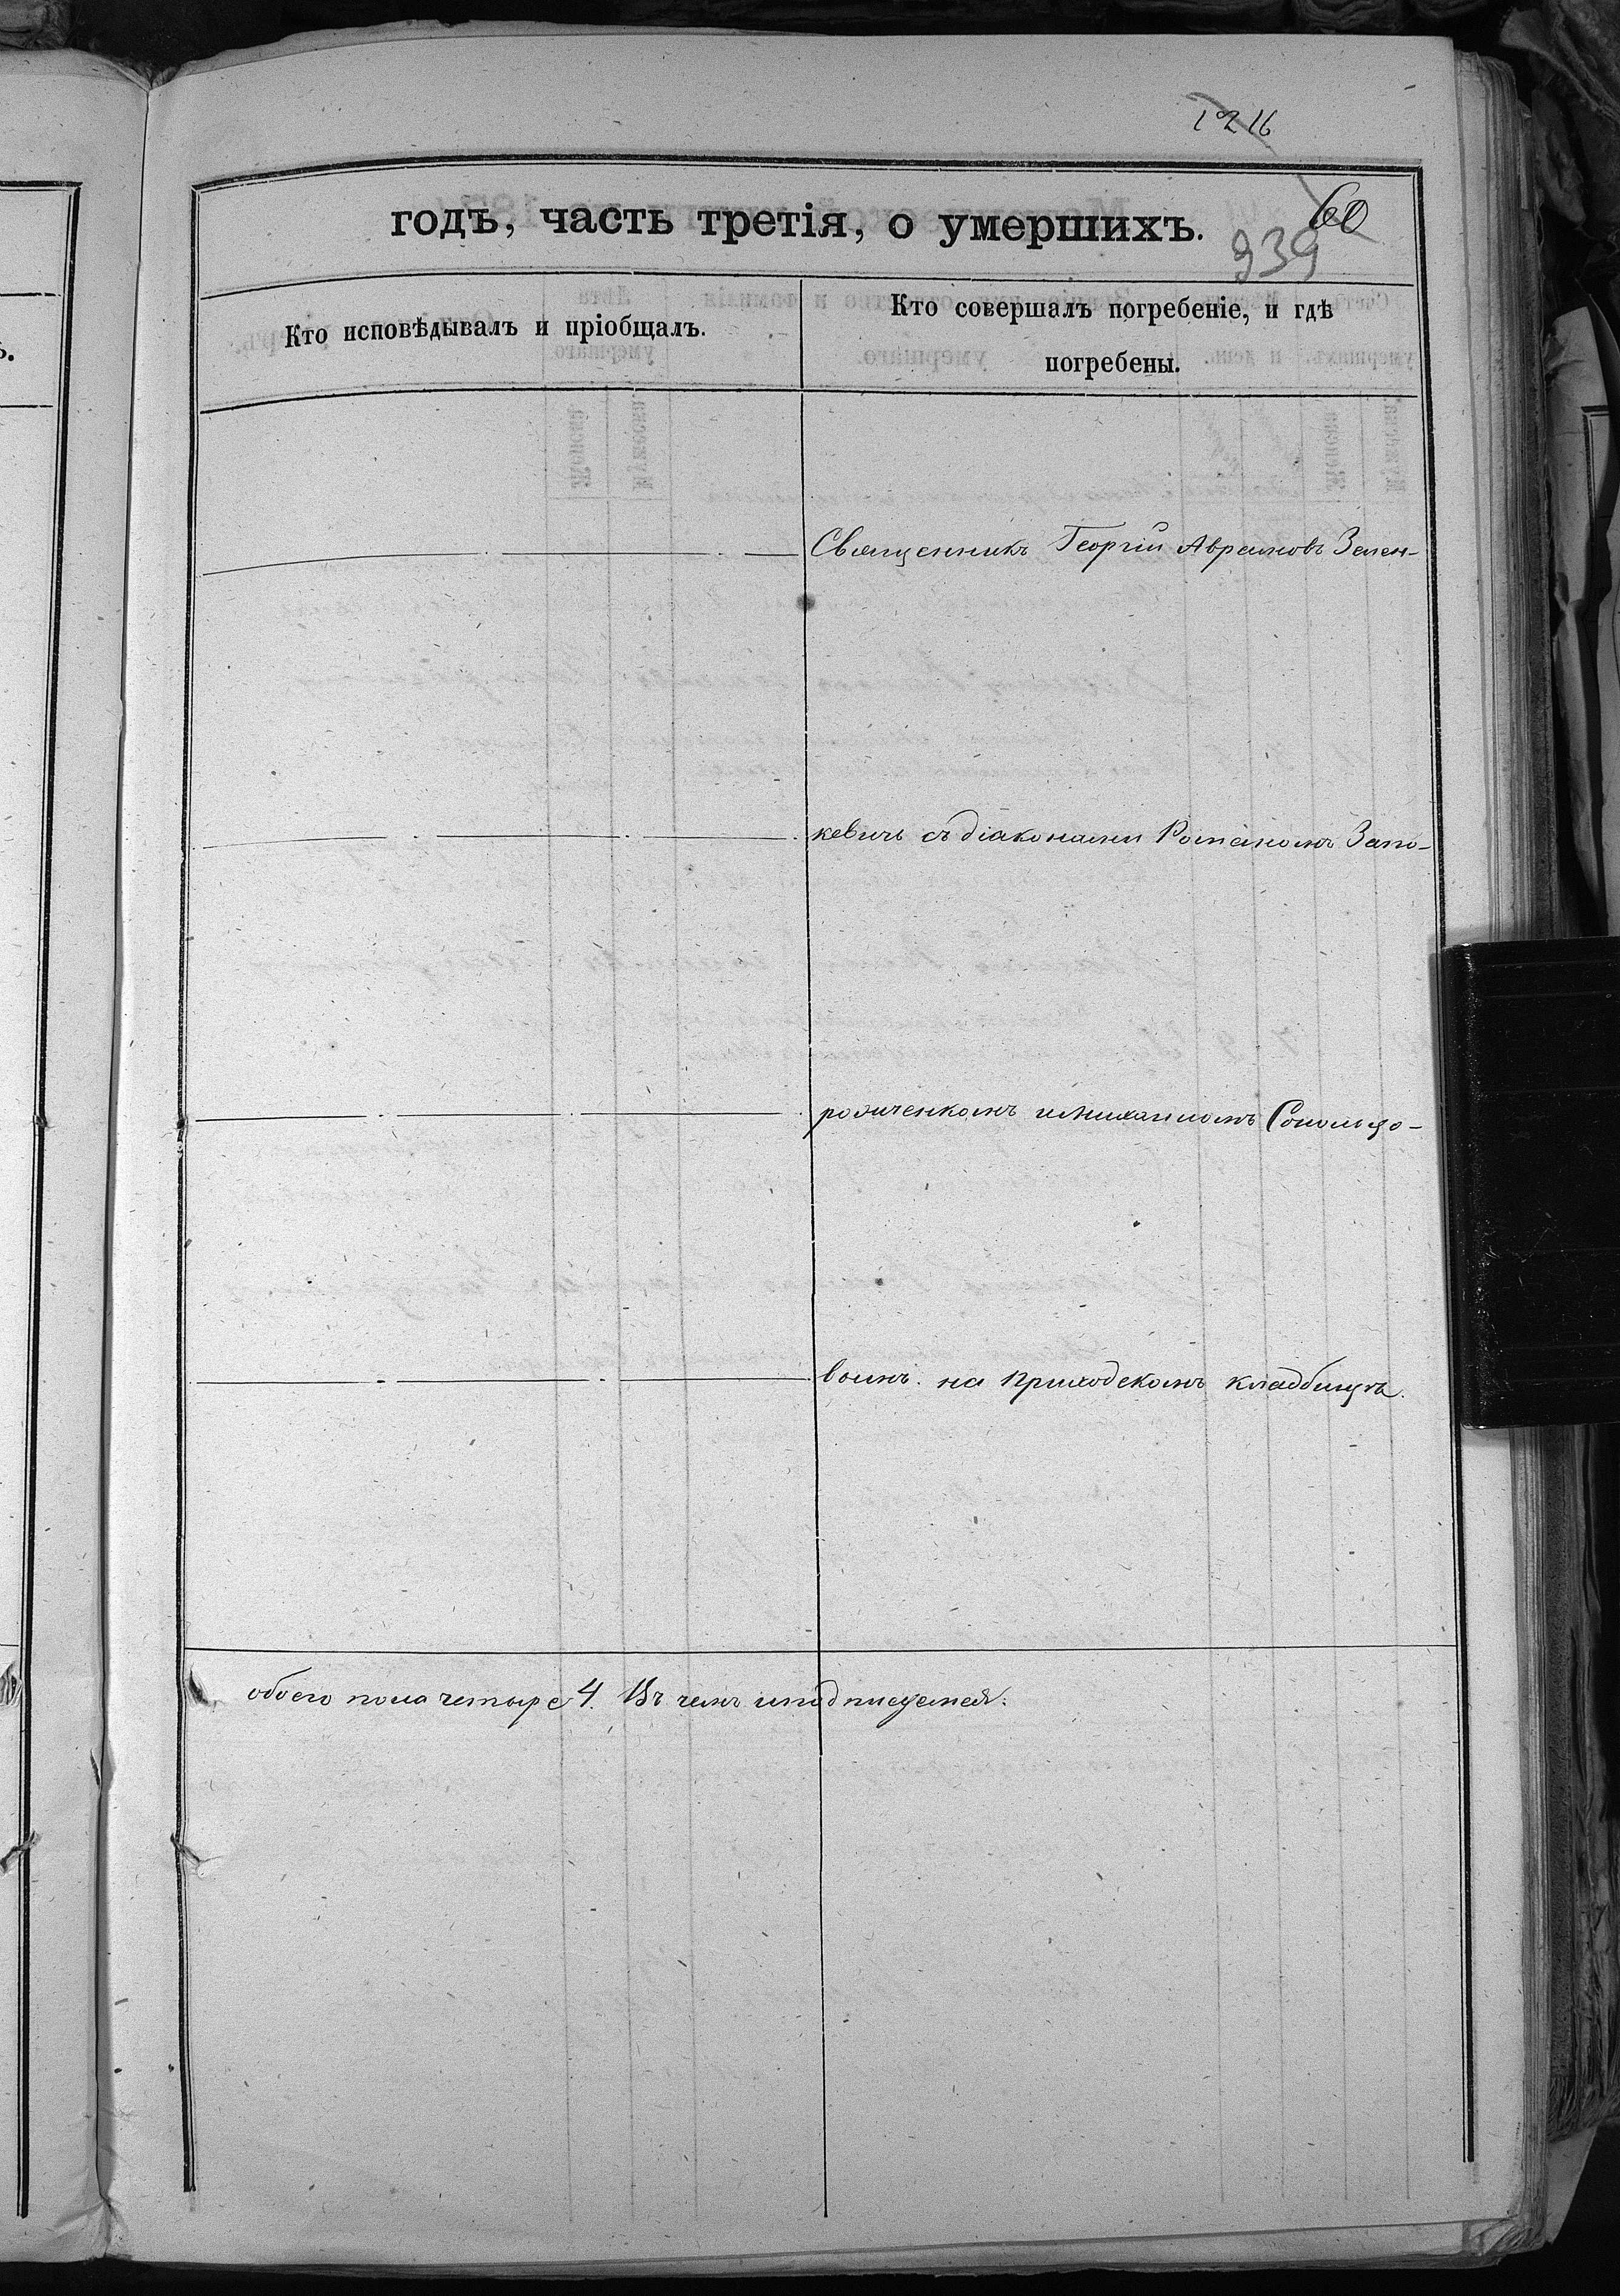 1216
годъ, часть третія, о умершихъ.
60
939
Кто исповѣдывалъ и пріобщалъ.
Кто совершалъ погребеніе, и гдѣ
погребены.
Священникъ Георгій Аврамовъ Зелен-
кевичь съ діаконами Романомъ Запо-
рожченкомъ и Михаиломъ Сокольцо-
вымъ. на приходскомъ кладбищѣ.
обоего пола четыре 4. Въ чемъ и подписуемся: